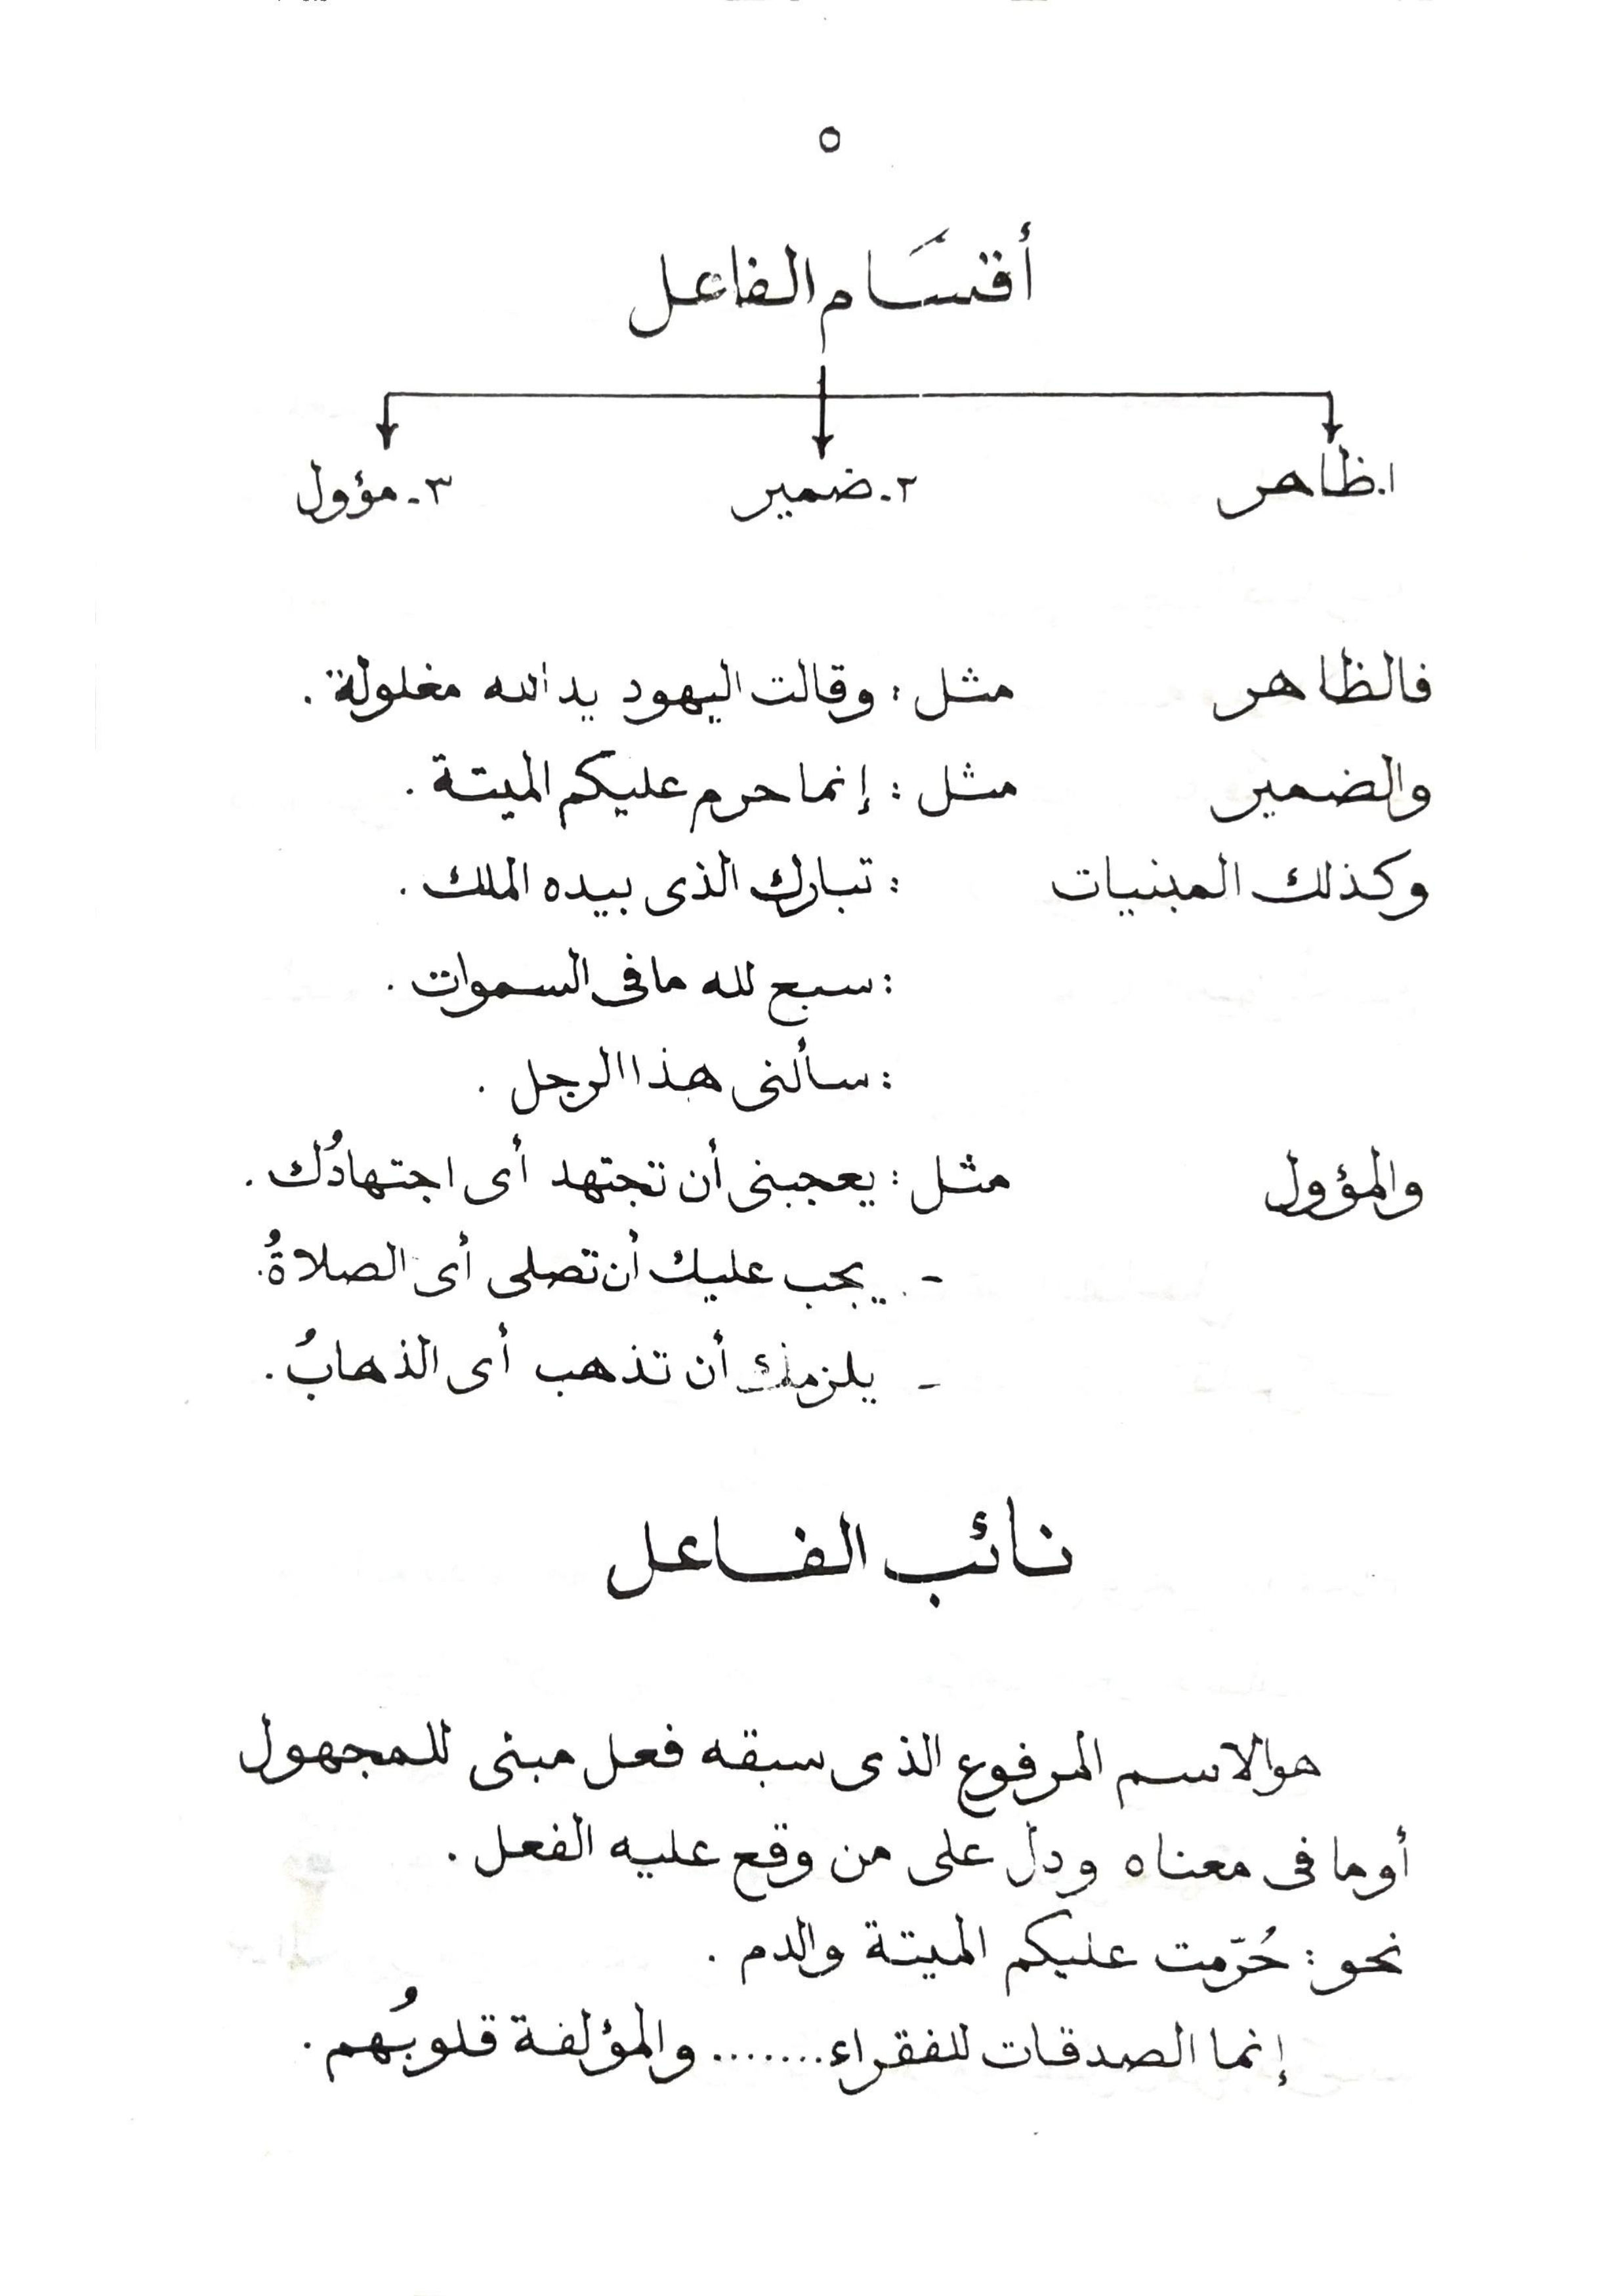 ٥
أقسَام الفاعل
١. ظاهر ٢- ضمير ٣- مؤول
فالظاهر مثل : وقالت اليهود يد الله مغلولة .
والضمير مثل : إنما حرم عليكم الميتة .
وكذلك المبنيات : تبارك الذى بيده الملك .
: سبع لله ما فى السموات .
: سألنى هذا الرجل .
والمؤول مثل : يعجبنى أن تجتهد أى اجتهادُك .
- . يجب عليك أن تصلى أى الصلاةُ .
- يلزمك أن تذهب أى الذهابُ .
نائب الفاعل
هو الاسم المرفوع الذى سبقه فعل مبنى للمجهول
أو ما فى معناه ودل على من وقع عليه الفعل .
نحو : حُرّمت عليكم الميتة والدم .
إنما الصدقات للفقراء ....... والمؤلفة قلوبُهم .